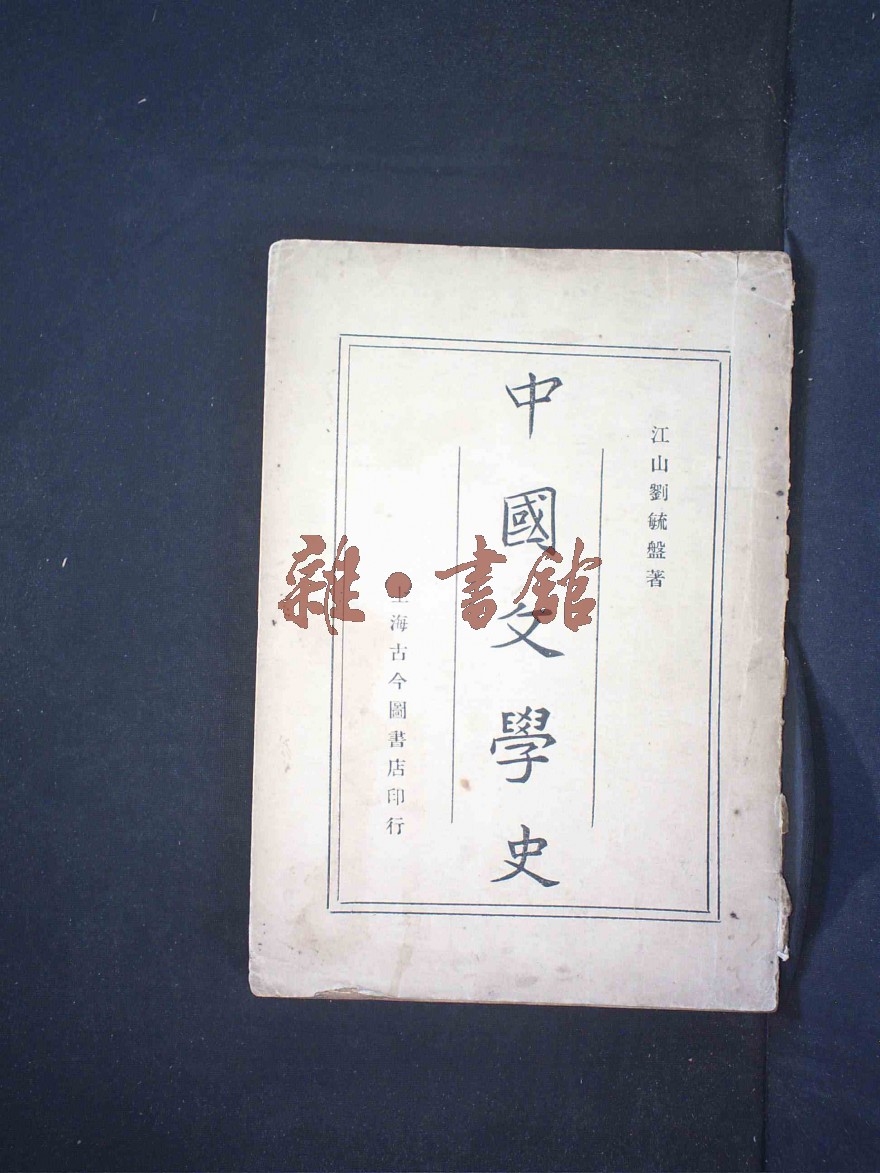 江山劉毓盤著
中國文學史
上海古今圖書店印行
雜·書館